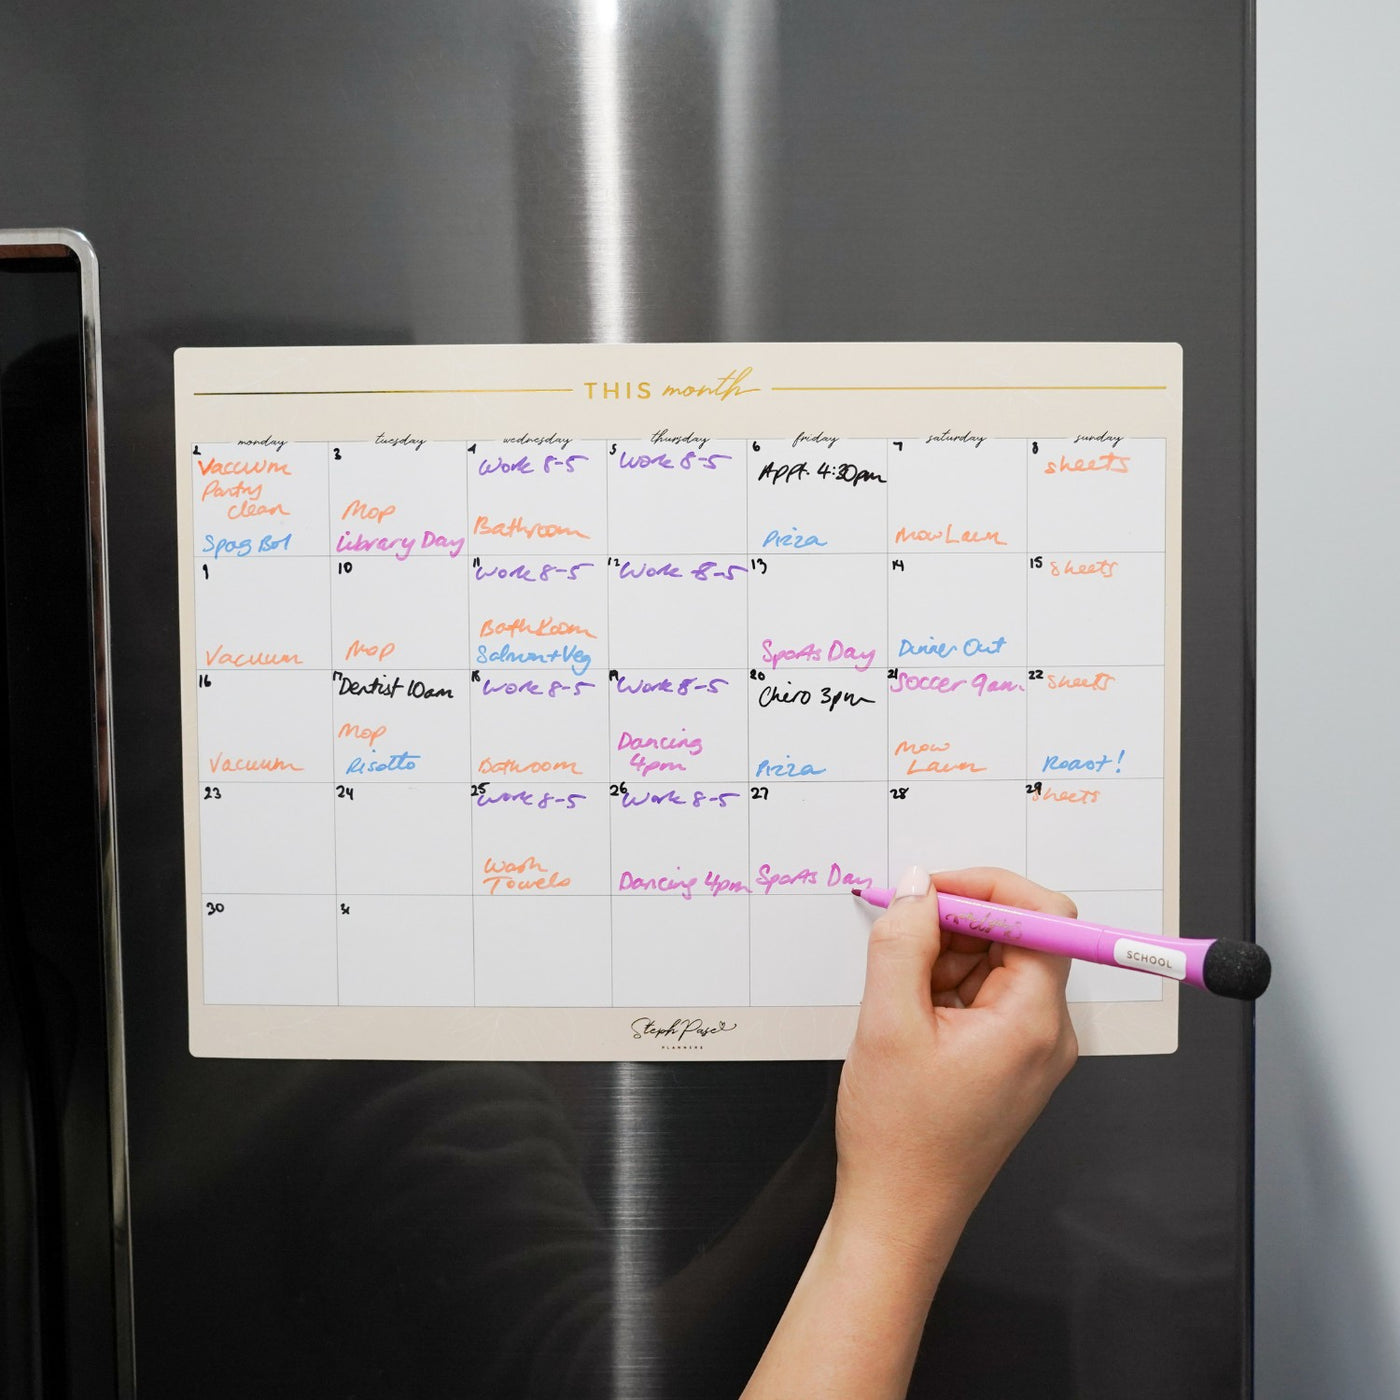 THIS month
monday tuesday wednesday thursday friday saturday sunday
2
Vacuum
Pantry
clean
Spag Bol
3
Mop
Library Day
4
Work 8-5
Bathroom
5
Work 8-5
6
Appt. 4:30pm
Pizza
7
Mow Lawn
8
Sheets
9
Vacuum
10
Mop
11
Work 8-5
BathRoom
Salmon+Veg
12
Work 8-5
13
Sports Day
14
Dinner Out
15
Sheets
16
Vacuum
17
Dentist 10am
Mop
Risotto
18
Work 8-5
Bathroom
19
Work 8-5
Dancing
4pm
20
Chiro 3pm
Pizza
21
Soccer 9am
Mow
Lawn
22
Sheets
Roast!
23
24
25
Work 8-5
Wash
Towels
26
Work 8-5
Dancing 4pm
27
Sports Day
28
29
Sheets
30
31
Steph Pase
PLANNERS
SCHOOL